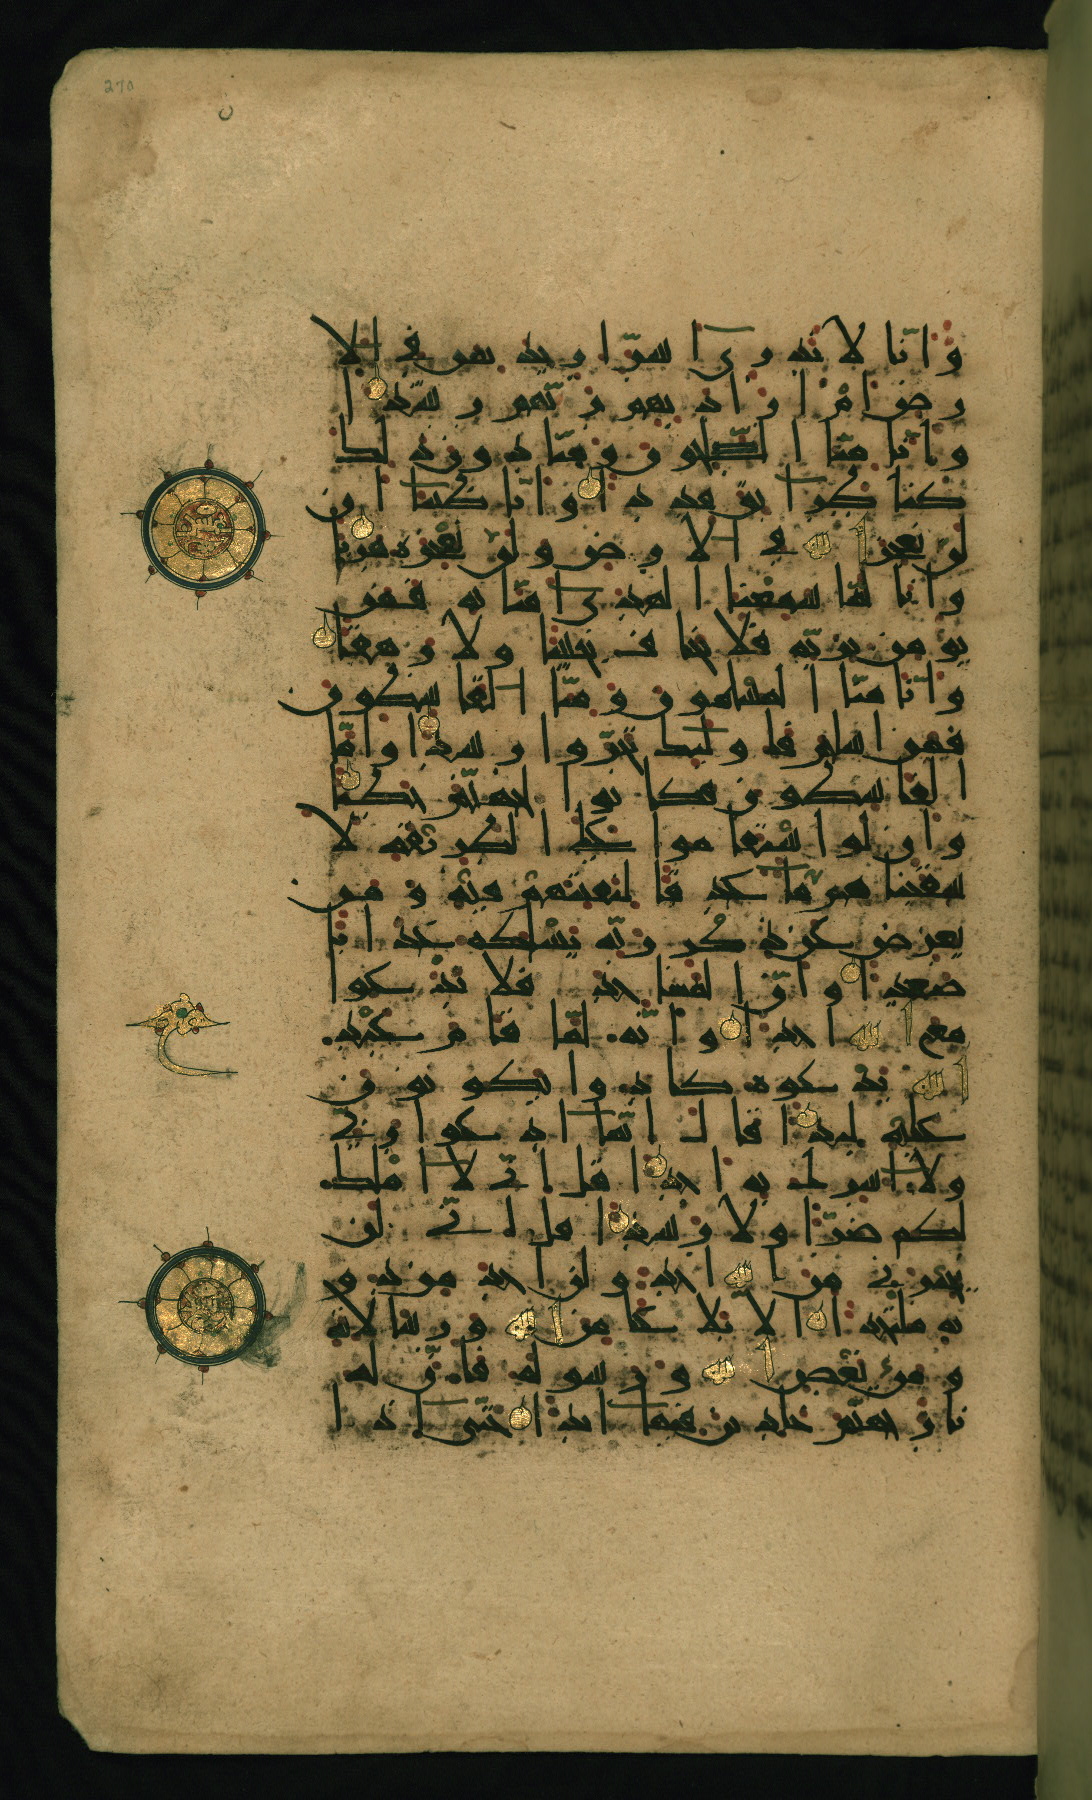 270
وانا لا ندري اشر اريد بمن في الا
رض ام اراد بهم ربهم رشدا
وانا منا الصلحون ومنا دون ذلك
كنا طرائق قددا وانا ظننا ان
لن نعجز الله في الارض ولن نعجزه هربا
وانا لما سمعنا الهدى امنا به فمن
يؤمن بربه فلا يخاف بخسا ولا رهقا
وانا منا المسلمون ومنا القاسطون
فمن اسلم فاولئك تحروا رشدا واما
القاسطون فكانوا لجهنم حطبا
وان لو استقاموا على الطريقة لا
سقيناهم ماء غدقا لنفتنهم فيه ومن
يعرض عن ذكر ربه يسلكه عذابا
صعدا وان المساجد فلا تدعوا
مع الله احدا وانه لما قام عبد
الله يدعوه كادوا يكونون
عليه لبدا قال انما ادعوا ربي
ولا اشرك به احدا قل اني لا املك
لكم ضرا ولا رشدا قل اني لن
يجيرني من الله احد ولن اجد من دو
نه ملتحدا الا بلاغا من الله ورسالاته
ومن يعص الله ورسوله فان له
نار جهنم خلدين فيها ابدا حتى اذا